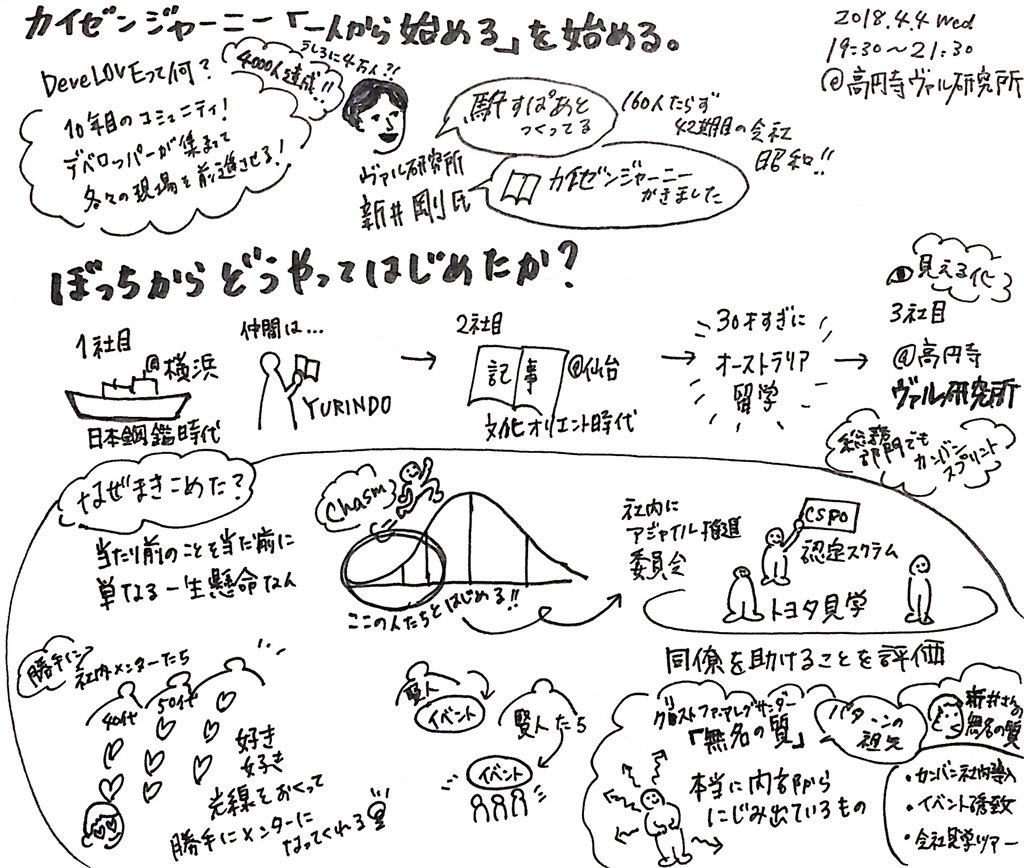 カイゼンジャーニー「一人から始める」を始める。
2018.4.4 Wed
19:30〜21:30
@高円寺ヴァル研究所
DeveLOVEって何?
10年目のコミュニティ!
デベロッパーが集まって
各々の現場を前進させる!
うしろに4万人?!
4000人達成!!
ヴァル研究所
新井剛氏
駅すぱあと
つくってる
160人たらず
42期目の会社
昭和!!
カイゼンジャーニー
がきました
ぼっちからどうやってはじめたか?
1社目
@横浜
日本鋼鑑時代
仲間は…
YURINDO
2社目
記事
@仙台
文化オリエント時代
30才すぎに
オーストラリア
留学
見える化
3社目
@高円寺
ヴァル研究所
総務
部門でも
カンバン
スプリント
なぜまきこめた?
当たり前のことを当たり前に
単なる一生懸命な人
Chasm
ここの人たちとはじめる!!
社内に
アジャイル推進
委員会
CSPO
認定スクラム
トヨタ見学
勝手に
社内メンターたち
40代
50代
好き
好き
光線をおくって
勝手にメンターに
なってくれる
賢人
イベント
賢人たち
イベント
同僚を助けることを評価
「無名の質」
パターンの
祖先
本当に内部から
にじみ出ているもの
新井さんの
無名の質
・カンバン社内導入
・イベント誘致
・会社見学ツアー